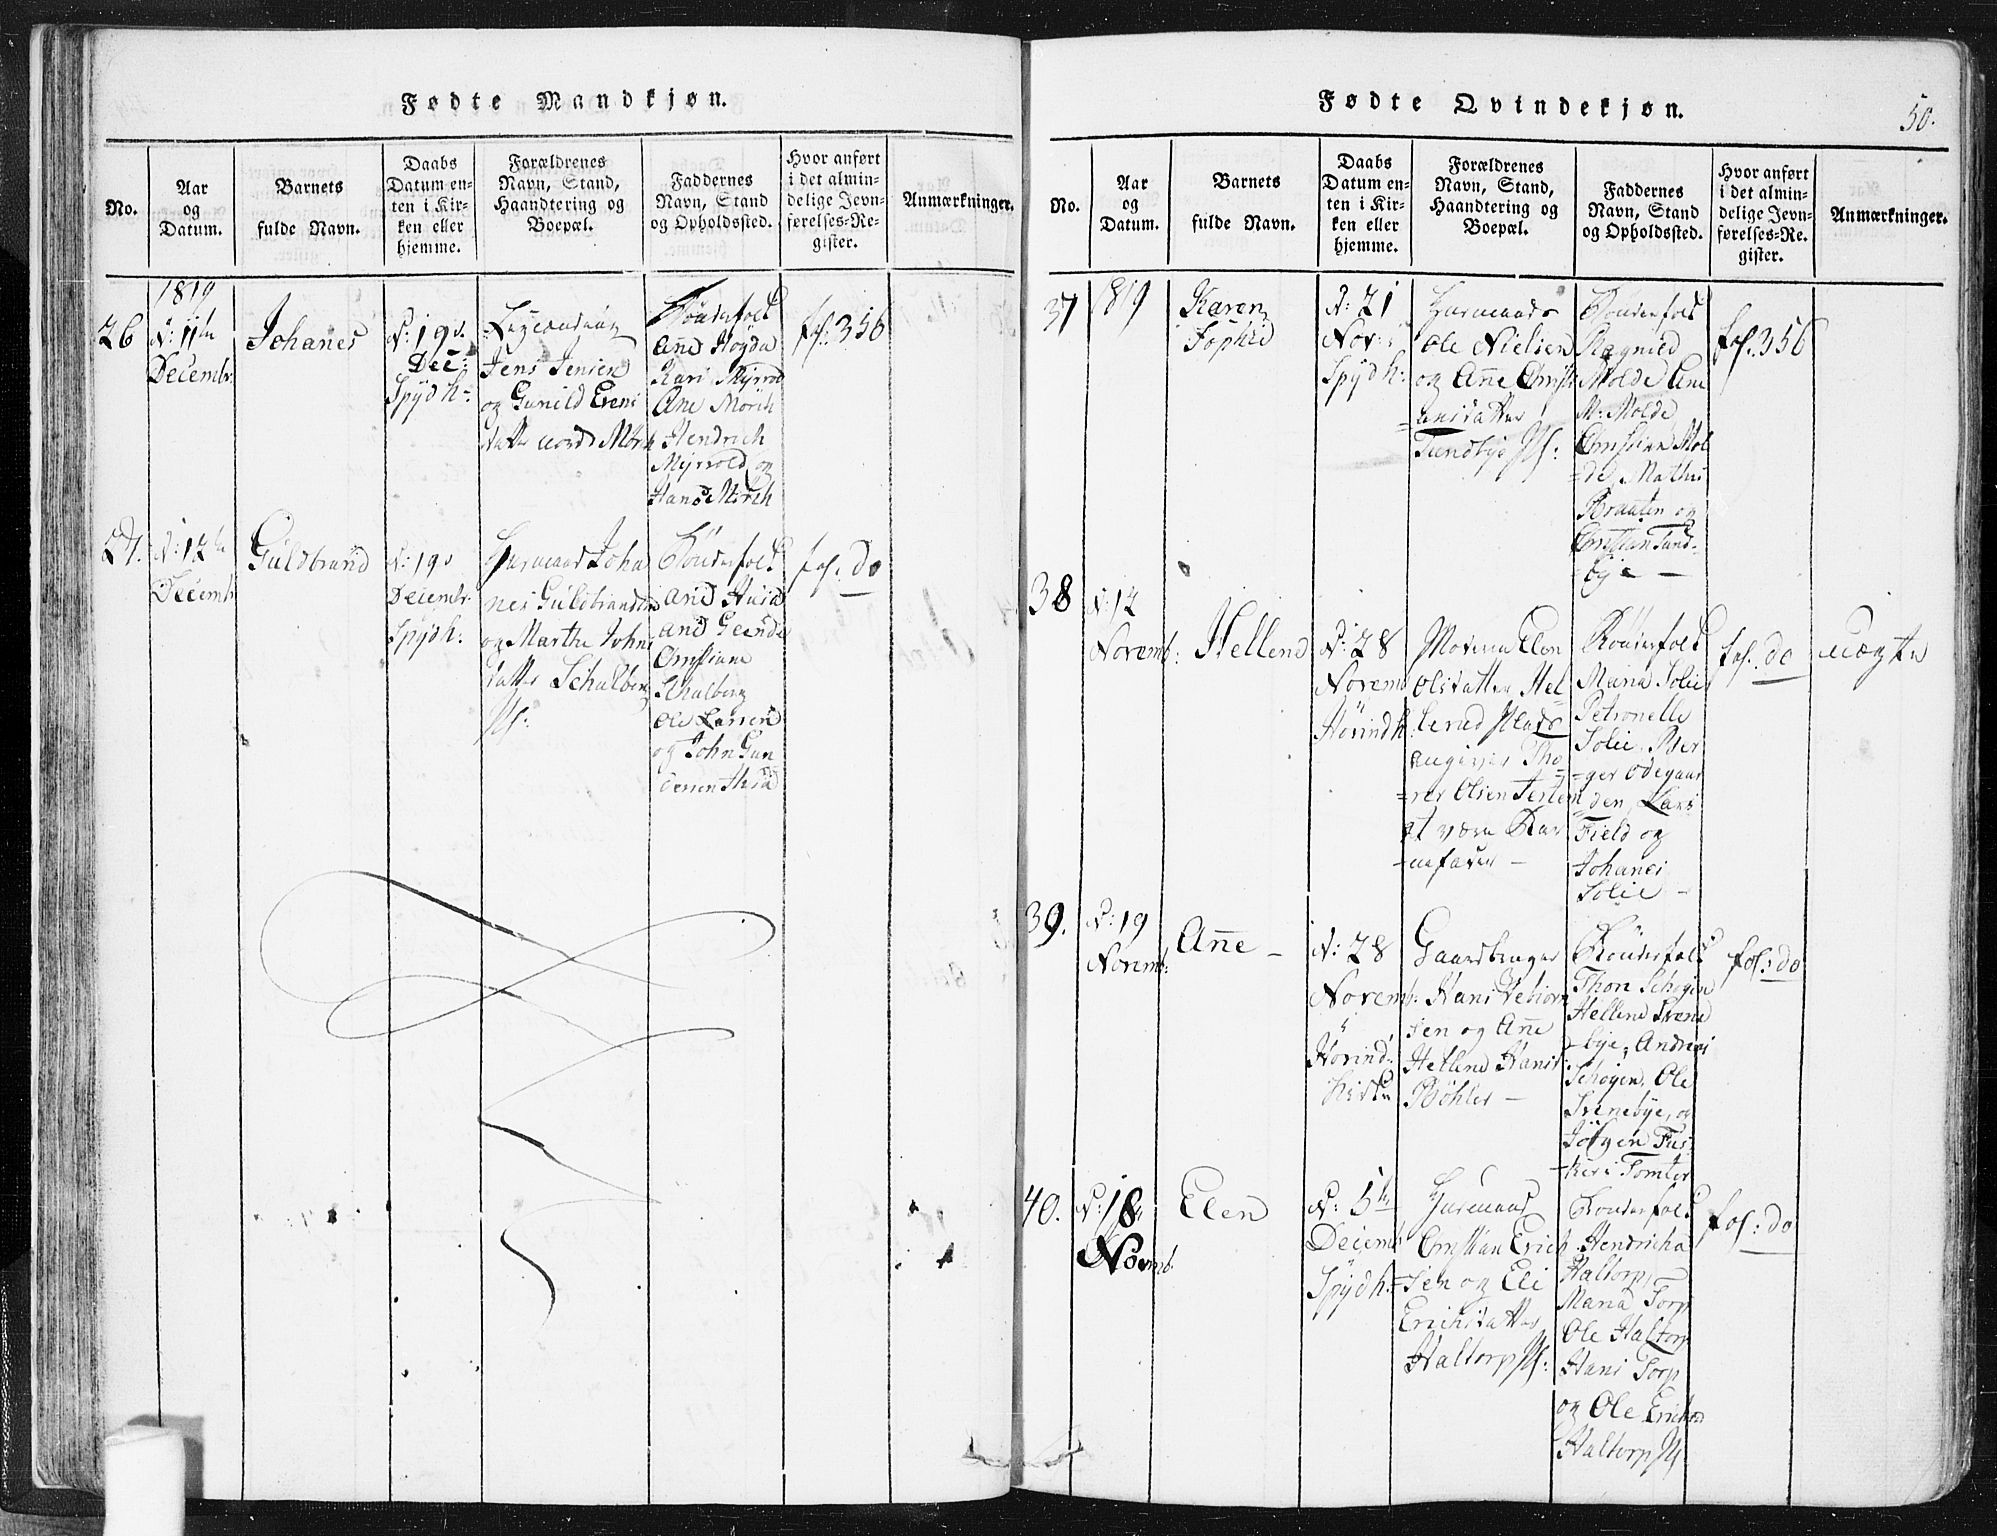 Fødte Mandkjøn.
No.
Aar
og
Datum.
Barnets
fulde Navn.
Daabs
Datum en-
ten i Kir-
ken eller
hjemme.
Forældrenes
Navn, Stand,
Haandtering og
Boepæl.
Faddernes
Navn, Stand
og Opholdssted.
Hvor anført
i det almin-
delige Jevn-
førelses-Re-
gister.
Anmærkninger.
26
1819
d: 11te
Decembr.
Johanes
d: 19de
Dec:
Spydb:
Jens Jensen
og Gunild Evens
datter nordre Mørk
Bønderfolk
Ane Høyda
Kari Myrvold
Ane Mørch
Hendrich
Myrvold og
Hans Mörch
fol: 356
27.
d: 12te
Decemb
Guldbrand
d: 19de
Decembr.
Spydb:
Huusmand Joha
nes Guldbrandsen
og Marthe Johns
datter Schulberg
Pl:
Bønderfolk
Christiane
Schulberg
Ole Larsen
og John Gun
dersen
fol: do
Fødte Qvindekjøn.
50.
No.
Aar
og
Datum.
Barnets
fulde Navn.
Daabs
Datum en-
ten i Kir-
ken eller
hjemme.
Forældrenes
Navn, Stand,
Haandtering og
Boepæl.
Faddernes
Navn, Stand
og Opholdssted.
Hvor anført
i det almin-
delige Jevn-
førelses-Re-
gister.
Anmærkninger.
37
1819
Karen
Sophie
d: 21
Nov:
Spydb:
Huusmand
Ole Nielsen
og Anne Christi
=ansdatter
Tundbye Pl:
Bønderfolk
Ragnild
Molde Ane
M: Molde
Christian Mol
=de, Mathis
Braaten og
Christian Tund-
bye —
fol. 356
38
d: 14
Novemb:
Hellene
d: 28
Novemb
Hovindk:
Moderen Elen
Olsdatter Hel
lerud Plads
angiver Tho
=rer Olsen
at være Bar
=nefader —
Bønderfolk
Maria Solie
Petronelle
Solie, Ber
=ger Ødegaar
=den, Lars
Field og
Johanes
Solie —
fol. do
uægte
39.
d: 19
Novemb:
Anne —
d: 28
Novemb:
Hovind
kirke
Gaardbruger
Hans Vebiørn
sen og Anne
Hellene Hansd
Bøhler —
Bønderfolk
Thon Schøgen
Hellene Svene
bye, Andreas
Schøgen, Ole
Svenebye, og
Jörgen Fus
=ker i Tomter
fol: do
40.
d: 18
Novemb.
Elen
d: 5te
Decemb
Spydb:
Huusmand
Christian Erich
=sen og Eli
Erichsdatter
Haltorp Pl:
Bønderfolk
Hendricha
Haltorp,
Maria Torp
Ole Haltorp
Hans Torp
og Ole Erichs
Haltorp Pl
fol: do